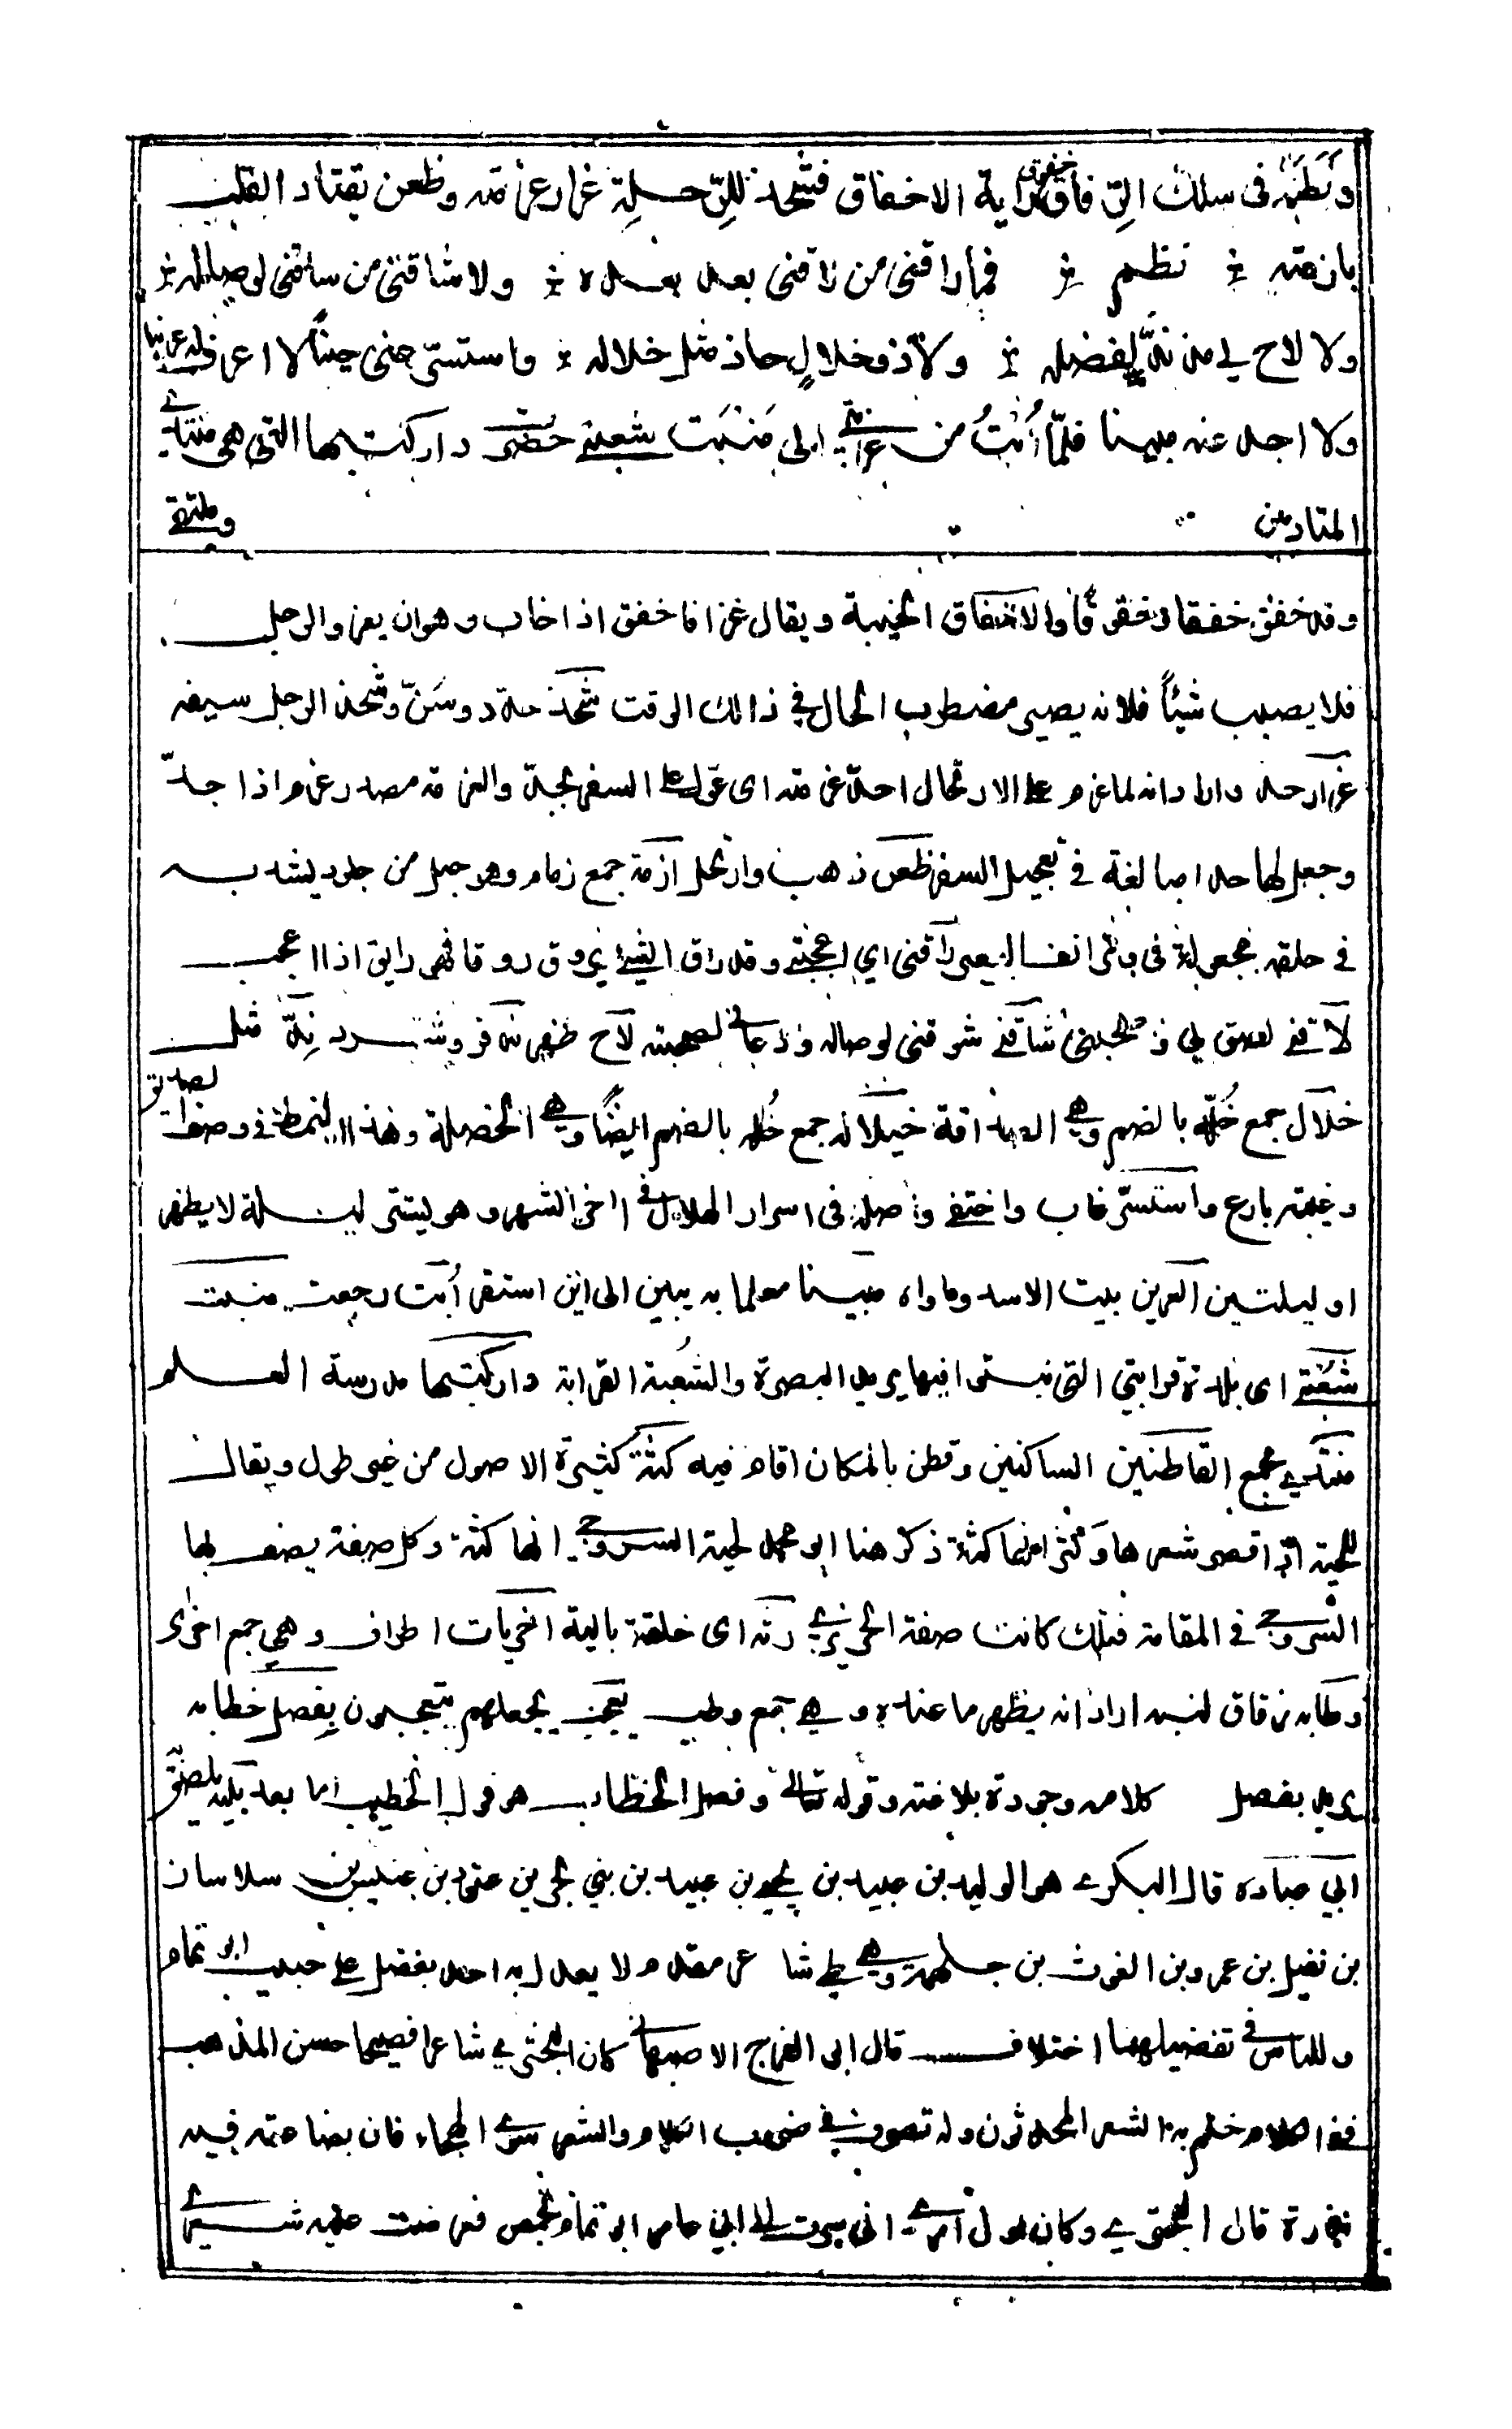 ونظمه في سلك الرفاق خفوق راية الاخفاق فشحذ للرحلة غرار عزمته وظعن يقتاد القلب
بازمته نظم فما راقني من لاقني بعد بعده ولا شاقني من ساقني لوصاله
ولا لاح لي مذ ندّ ندّ لفضله ولا ذو خلال حاز مثل خلاله واستسرّ عني حيناً لا اعرف له عرينا
ولا اجد عنه مبينا فلمّا أُبتُ من غربتي الى مَنبَت شعبتي حضرت دار كتبها التي هي منتدى
المتادبين وملتقى
وقد خفق خفقا وخفوقاً والاخفاق الخيبة ويقال غزا فاخفق اذا خاب وهو ان يغزو الرجل
فلا يصيب شيئاً فلانه يصير مضطرب الحال في ذالك الوقت شحذ حدّد وسَنّ وشحذ الرجل سيفه
غرار حد واراد انه لما عزم على الارتحال احدّ عزمته اى عوّل على السفر بجدّ والعزمة مصدر عزم اذا جدّ
وجعل لها حدا مبالغة في تعجيل السفر ظعن ذهب وارتحل ازمة جمع زمام وهو حبل من جلود يشد به
في حلقه فجعل في وترة انف البعير راقني اي اعجبني وقد راق الشئ يروق روقا فهو رايق اذا اعجب
لاقني لصق بي وحبسني شاقني شوقني لوصاله ودعاني لصحبته لاح ظهر ند فر وشرد نِدّ مثل
خلال جمع خُلّة بالضم وهي الصداقة خلاله جمع خلة بالضم ايضاً وهي الخصلة وهذا النمط في وصف صديق
وغيبته بارع واستسرّ غاب واختفى واصله في اسرار الهلال في اخر الشهر وهو يستتر ليلة لا يظهر
او ليلتين العرين بيت الاسد وماواه مبينا معلما به يبين الى اين استقر أُبت رجعت منبت
شعبتي اى بلدة قرابتي التي نبتوا فيها يريد البصرة والشُعبة القرابة دار كتبها مدرسة العلم
منتدى مجمع القاطنين الساكنين وقطن بالمكان اقام فيه كثّة كثيرة الاصول من غير طول ويقال
للحية اذا قصر شعرها وكثر انها كثة ذكر هنا ابو محمد لحية السروجي انها كثة وكل صفة يصف بها
السروجي في المقامة فتلك كانت صفة الحريري رثة اى خلقة بالية اخريات اطراف وهي جمع اخرى
وطابه زقاق لبنه اراد انه يظهر ما عنده وهي جمع وطب يعجب يجعلهم يتعجبون بفصل خطابه
يريد بفصل كلامه وجودة بلاغته وقوله تعالى وفصل الخطاب هو قول الخطيب اما بعد يليه يلصق
ابي عبادة قال البكرى هو الوليد بن عبيد بن يحيى بن عبيد بن بني بحتر بن عتود بن عنين بن سلامان
بن نفيل بن عمرو بن الغوث بن جلهمة وهي طي شاعر مقدم لا يعدل به احد بفضل على حبيب ابو تمام
وللناس في تفضيلهما اختلاف قال ابو الفرج الاصبهاني كان البحتري شاعرا فصيحا حسن المذهب
نقي الكلام ختم به الشعر المحدثون وله تصرف في ضروب الكلام والشعر سوى الهجاء فان بضاعته فيه
نزرة قال البحتري وكان اول امرى اني سرت الى ابي تمام بحمص فعرضت عليه شعرى